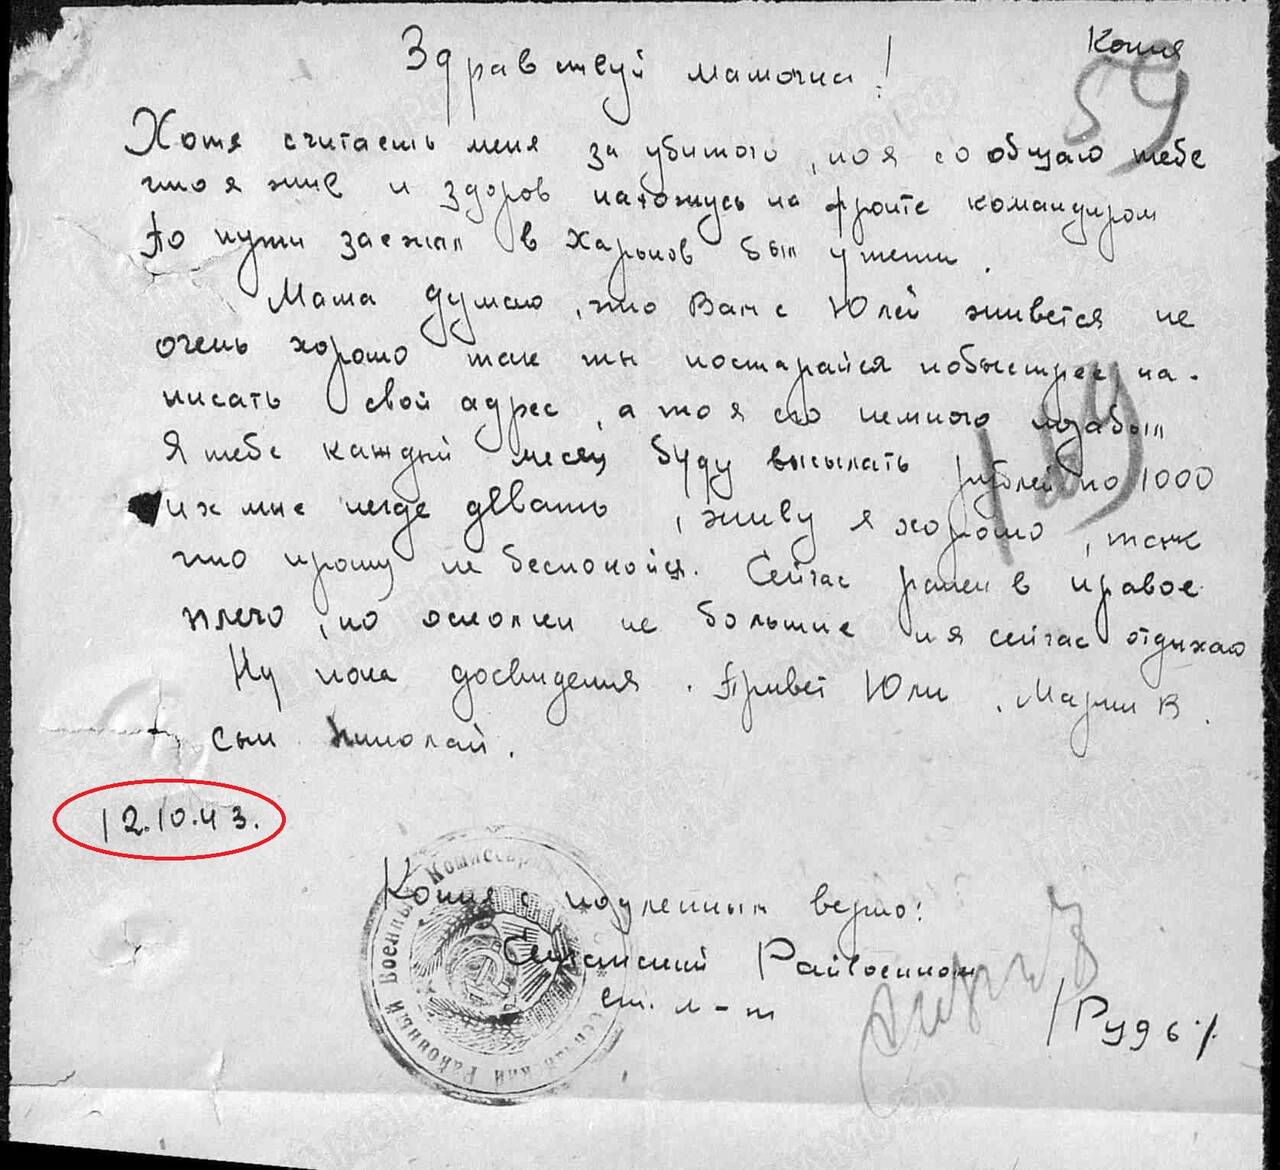 Копия
59
Здравствуй мамочка!
Хотя считаешь меня за убитого, но я сообщаю тебе
что я жив и здоров нахожусь на фронте командиром
По пути заезжал в Харьков был у тети.
Мама думаю, что Вам с Юлей живется не
очень хорошо так ты постарайся побыстрее на-
писать свой адрес, а то я его немного позабыл
Я тебе каждый месяц буду высылать рублей по 1000
их мне негде девать, живу я хорошо, так
что прошу не беспокойся. Сейчас ранен в правое
плечо, но осколки не большие и я сейчас отдыхаю
Ну пока досвидения. Привет Юли, Марии В.
сын Николай.
12.10.43.
Копия с подленным верно:
Райвоенком
ст. л-т /Рудь/
Районный Военный Комиссариат